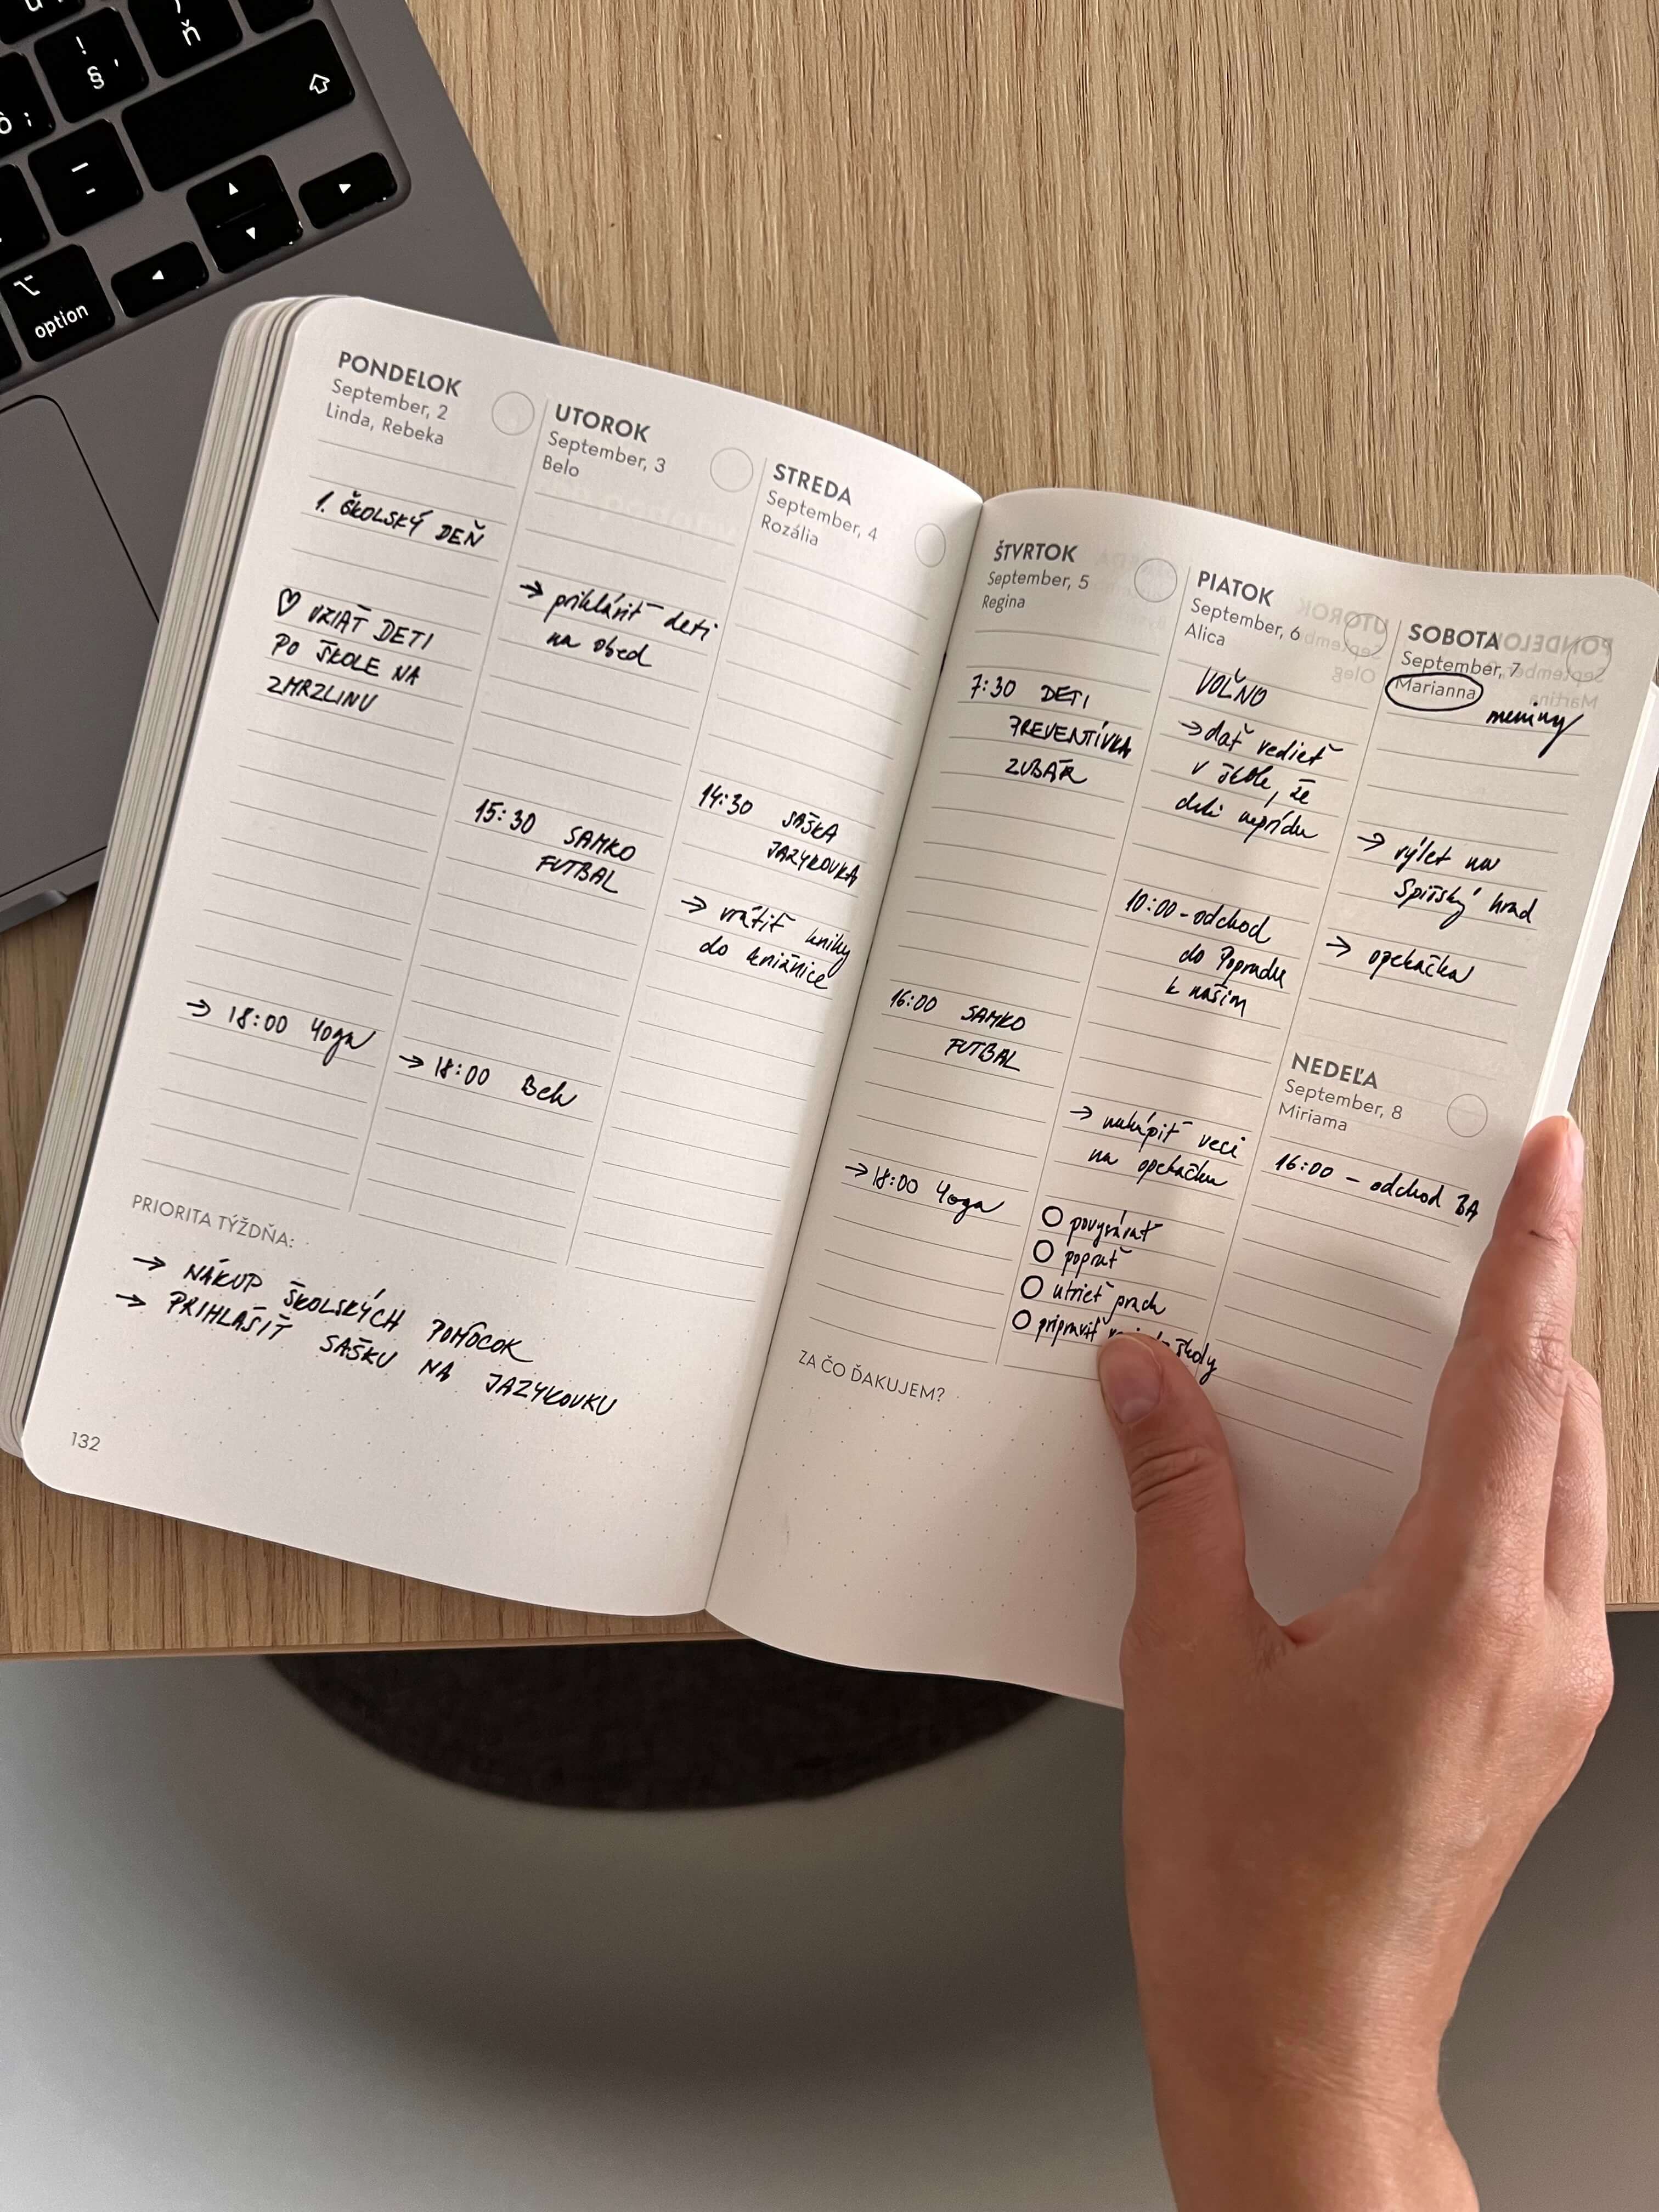 !
§ '
ň
ô ;
–
-
option
PONDELOK
September, 2
Linda, Rebeka
1. ŠKOLSKÝ DEŇ
♡ VZIAŤ DETI
PO ŠKOLE NA
ZMRZLINU
→ 18:00 Yoga
UTOROK
September, 3
Belo
→ prihlásiť deti
na obed
15:30 SAMKO
FUTBAL
→ 18:00 Beh
STREDA
September, 4
Rozália
14:30 SAŠKA
JAZYKOVKA
→ vrátiť knihy
do knižnice
PRIORITA TÝŽDŇA:
→ NÁKUP ŠKOLSKÝCH POMÔCOK
→ PRIHLÁSIŤ SAŠKU NA JAZYKOVKU
132
ŠTVRTOK
September, 5
Regina
7:30 DETI
PREVENTÍVKA
ZUBÁR
16:00 SAMKO
FUTBAL
→ 18:00 Yoga
PIATOK
September, 6
Alica
VOĽNO
→ dať vedieť
v škole, že
deti neprídu
10:00 - odchod
do Popradu
k našim
→ nakúpiť veci
na opekačku
○ povysávať
○ poprať
○ utrieť prach
○ pripraviť školy
SOBOTA
September, 7
Marianna
meniny
→ výlet na
Spišský hrad
→ opekačka
NEDEĽA
September, 8
Miriama
16:00 - odchod BA
ZA ČO ĎAKUJEM?